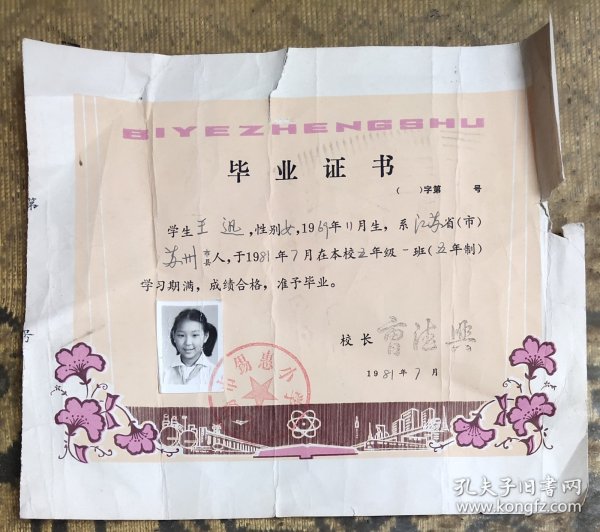 BIYEZHENGSHU
毕业证书
（　）字第　号
学生王迅，性别女，1969年11月生，系江苏省(市)
苏州市县人，于1981年7月在本校五年级一班(五年制)
学习期满，成绩合格，准予毕业。
校长
1981年7月
锡惠小学
第
号
孔夫子旧书网
www.kongfz.com